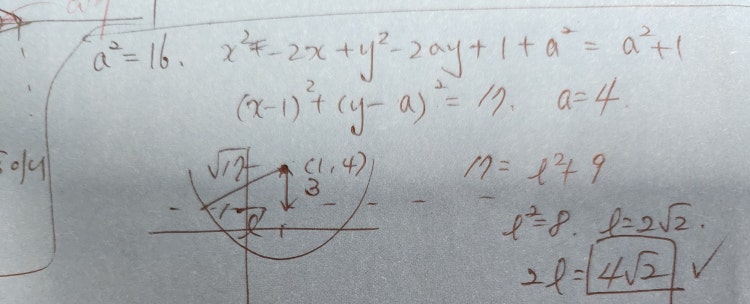 a² = 16. x² - 2x + y² - 2ay + 1 + a² = a² + 1
(x-1)² + (y-a)² = 17. a = 4.
√17 (1, 4) 17 = l² + 9
3
l l² = 8. l = 2√2.
1
2l = 4√2 ✓